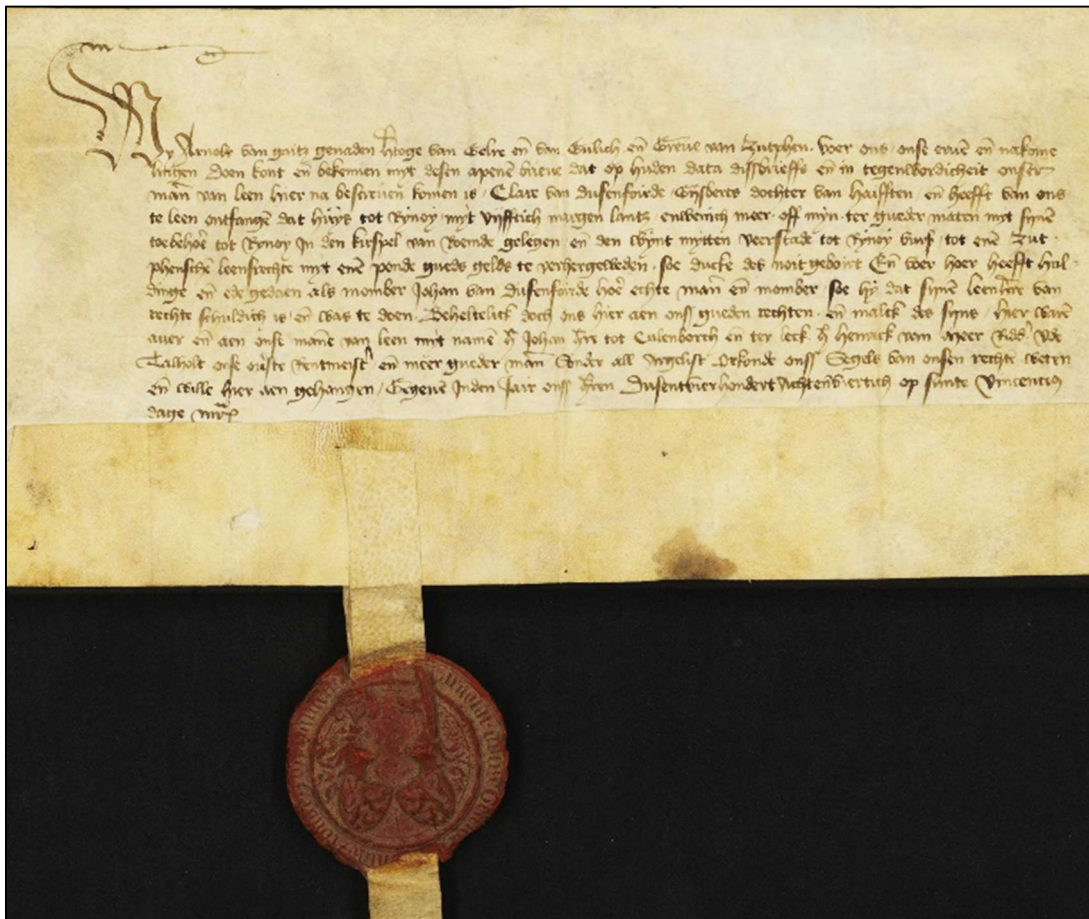 Wy Arnolt van gaitz genaden htoge van Gelre eñ van Guilich eñ Greue van Zutphen. Voer ons onse eruē eñ nakome
lingen Doen kont eñ bekennen myt desen apenē brieue dat op huden data dissbrieffs eñ in tegenwordicheit onser
man van leen hier na bescreuē komen is Clare van Dusenforde Gysberts dochter van Haifften eñ heefft van ons
te leen ontfangē dat huys tot Rynoy myt vyfftich margen lantz enweinich meer off myn ter gueder maten myt synē
toebehoē tot Rynoy In den kirspel van Roemde gelegen eñ den wynt mytten veerstade tot Rynoy tot enē zut
phenschē leenrechte myt enē ponde gueds gelds te verhergeweden soe ducke des noit geboirt Eñ voer hoer heefft hul
dinge eñ ede gedaen als momber Johan van Dusenforde hoē echte man eñ momber soe hy dat synē leenhrē van
rechte schuldich is eñ was te doen. Beheltelick doch ons hier aen onss gueden rechten eñ malck des syns hier warē
auer eñ aen onse manē van leen mit namē h Johan hre tot Culenborch eñ ter leck h van Ude
Talholt onse ouste Rentmeist eñ meer gueder man Sonder all argelist Orkonde onss Segels van onsen rechte weten
eñ wille hier aen gehangen Gegeuē Inden Jair onss hren Dusentvierhondert Achtenviertich op sunte Vincencius
dage